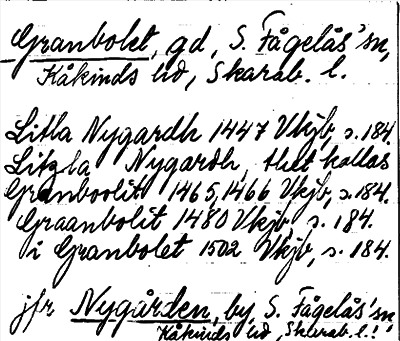 Granbolet, gd, S. Fågelås' sn,
Kåkinds hd, Skarab. l.
Litla Nygardh 1447 Vkjb, s. 184.
Litzla Nygardh, thet kallas
Granboolit 1465, 1466 Vkjb, s. 184.
Graanbolit 1480 Vkjb, s. 184.
i Granbolet 1502 Vkjb, s. 184.
jfr Nygården, by, S. Fågelås' sn
Kåkinds hd, Skarab. l.!